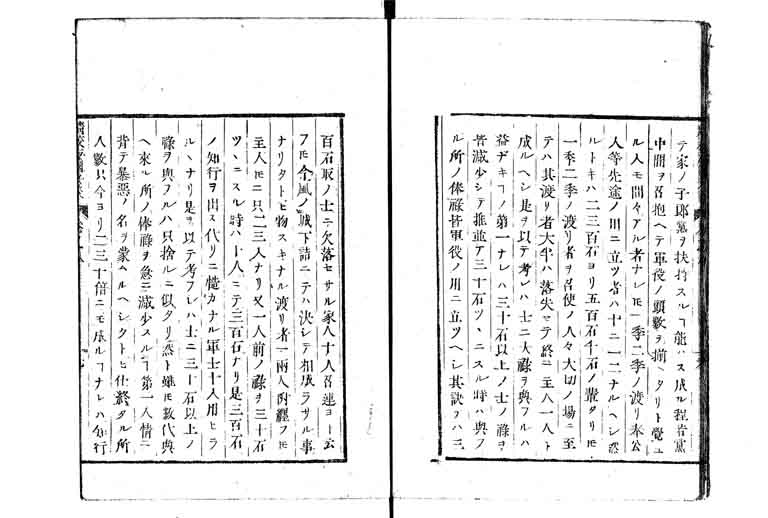 テ家ノ子郎黨ヲ扶持スルヿ能ハス成ル程若黨
中間ヲ召抱ヘテ軍役ノ頭數ヲ揃ヘタリト覺ユ
ル人モ間々アル者ナレ𪜈一季二季ノ渡リ奉公
人等先途ノ用ニ立ツ者ハ十ニ一二ナルヘシ然
ルトキハ二三百石ヨリ五百石千石ノ輩タリ𪜈
一季二季ノ渡リ者ヲ召使ノ人々大切ノ場ニ至
テハ其渡リ者大半ハ落失テ終ニ主人一人ト
成ルヘシ是ヲ以テ考レハ士ニ大祿ヲ與フルハ
益ナキヿノ第一ナレハ三十石以上ノ士ノ祿ヲ
皆減少シテ推並ア三十石ツヽニスル時ハ與フ
ル所ノ俸祿皆軍役ノ用ニ立ツヘシ其訣ヲハ三
百石取ノ士ニ欠落セサル家人十人召連ヨト云
フ𪜈今風ノ城下詰ニテハ決シテ相成ラサル事
ナリタトヒ物スキナル渡リ者一兩人附纒フ𪜈
主人𪜈ニ只二三人ナリ又一人前ノ祿ヲ三十石
ツヽニスル時ハ十人ニテ三百石ナリ是三百石
ノ知行ヲ出ス代リニ慥カナル軍士十人用ヒラ
ルヽナリ是ヲ以テ考フレハ士ニ三十石以上ノ
祿ヲ與フルハ只捨ルニ似タリ然ト雖モ數代典
ヘ來ル所ノ俸祿ヲ急ニ減少スルヿ第一人情ニ
背テ暴惡ノ名ヲ蒙ヘルヘシタトヒ仕終タル所
人數只今ヨリ二三十倍ニモ成ルヿナレハ知行